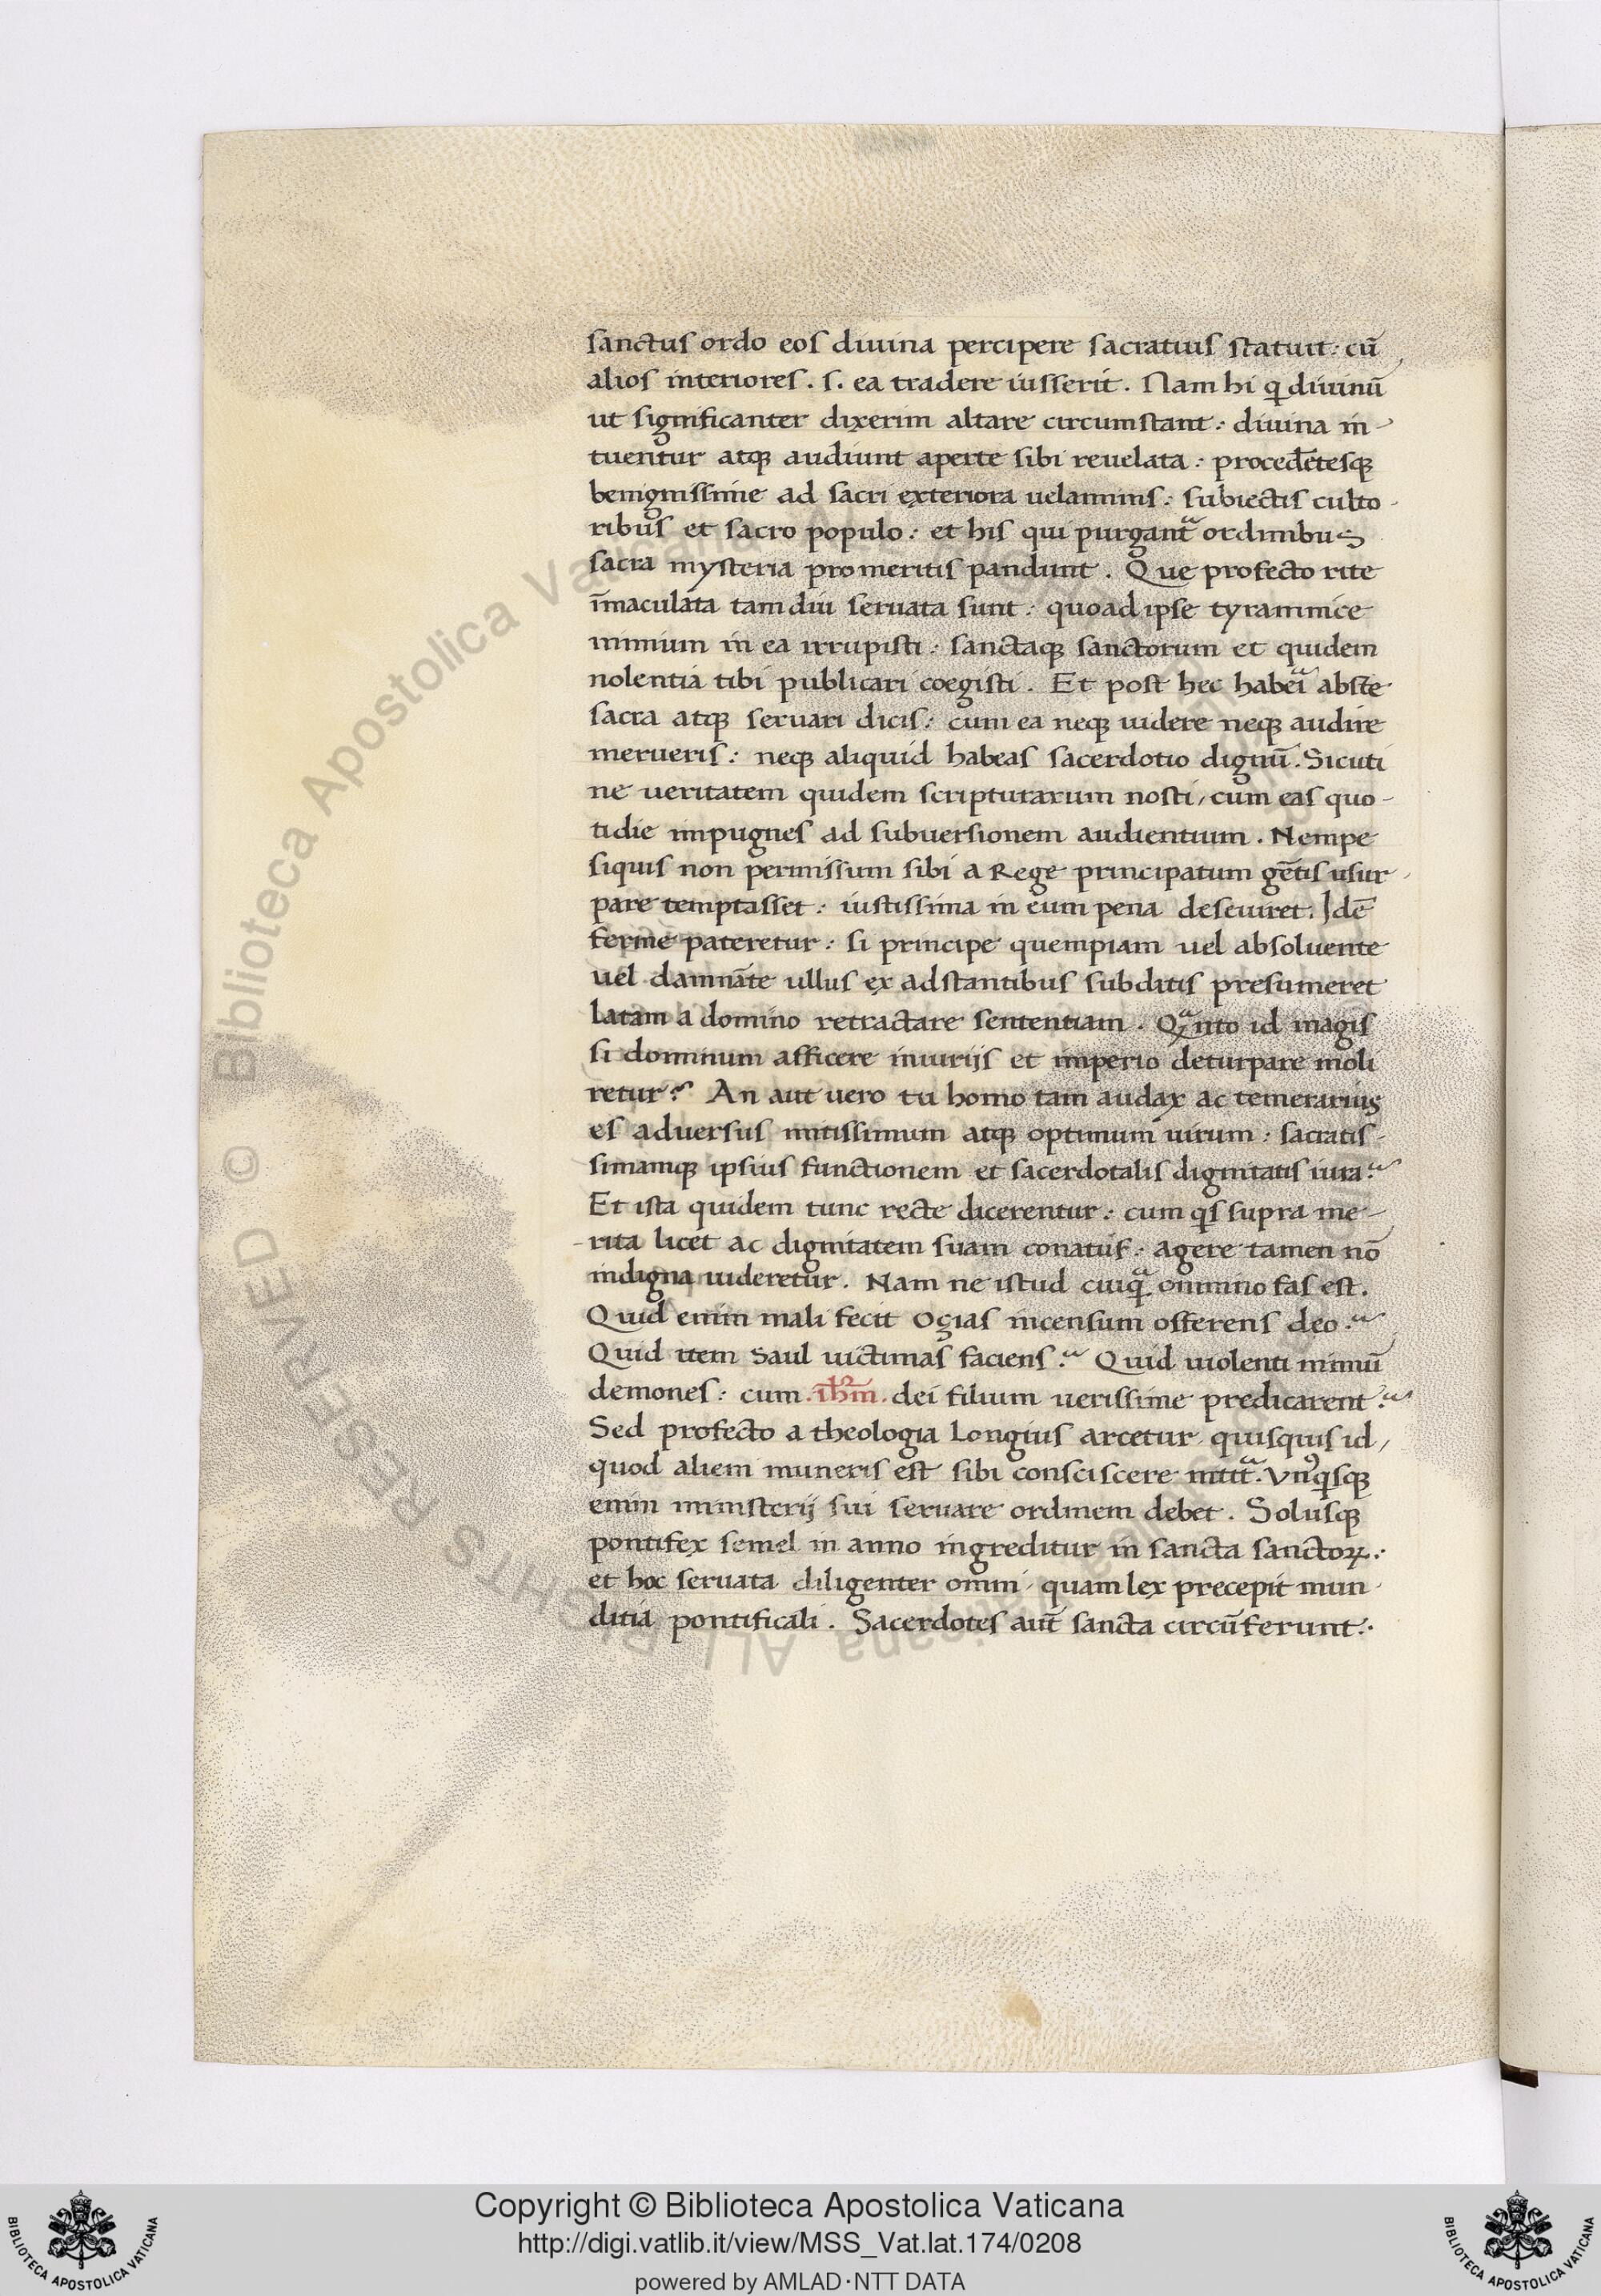 sanctus ordo eos diuina percipere sacratius statuit: cū
alios interiores. s. ea tradere iusserit. Nam hi q̄ diuinū
ut significanter dixerim altare circumstant: diuina in-
tuentur atqꝫ audiunt aperte sibi reuelata: procedētesqꝫ
benignissime ad sacri exteriora uelaminis: subiectis culto-
ribus et sacro populo: et his qui purgantᵃ ordinibus
sacra mysteria pro meritis pandunt. Que profecto rite
īmaculata tam diu seruata sunt: quoad ipse tyrannice
nimium in ea irrupisti: sanctaqꝫ sanctorum et quidem
nolentia tibi publicari coegisti. Et post hec haberiᵃ abste
sacra atqꝫ seruari dicis: cum ea neqꝫ uidere neqꝫ audire
merueris: neqꝫ aliquid habeas sacerdotio dignū. Sicuti
ne ueritatem quidem scripturarum nosti, cum eas quo-
tidie impugnes ad subuersionem audientium. Nempe
siquis non permissum sibi a Rege principatum gētis usur-
pare temptasset: iustissima in eum pena deseuiret. Idē
ferme pateretur: si principe quempiam uel absoluente
uel damnāte ullus ex adstantibus subditis presumeret
latam a domino retractare sententiam. Qᵃnto id magis
si dominum afficere iniurijs et imperio deturpare moli
retur? An aut uero tu homo tam audax ac temerarius
es aduersus mitissimum atqꝫ optimum uirum: sacratis-
simamqꝫ ipsius functionem et sacerdotalis dignitatis iura?
Et ista quidem tunc recte dicerentur: cum qis supra me-
rita licet ac dignitatem suam conatus: agere tamen nō
indigna uideretur. Nam ne istud cuiqᵃ omnino fas est.
Quid enim mali fecit Oçias incensum offerens deo?
Quid item Saul uictimas faciens? Quid uiolenti nimiū
demones: cum .ihm̄. dei filium uerissime predicarent?
Sed profecto a theologia Longius arcetur quisquis id,
quod alieni muneris est sibi consciscere nititᵃ. Vn⁹qisqꝫ
enim ministerij sui seruare ordinem debet. Solusqꝫ
pontifex semel in anno ingreditur in sancta sanctoꝝ:
et hoc seruata diligenter omni, quam lex precepit mun-
ditia pontificali. Sacerdotes aut̄ sancta circūferunt:
Copyright © Biblioteca Apostolica Vaticana
http://digi.vatlib.it/view/MSS_Vat.lat.174/0208
powered by AMLAD·NTT DATA